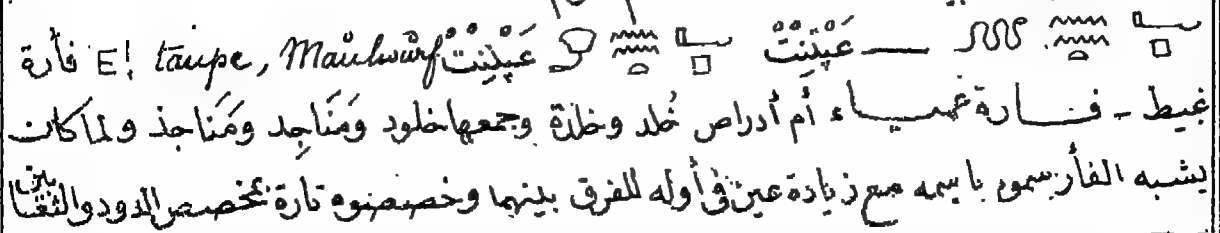 عَپْنِنْتْ — عَپْنِنْتْ E! taupe, Maulwurf فأرة
غيط - فارة عمياء أم أدراص خُلد وخلدة وجمعها خلود ومَنَاجِد ومَنَاجذ ولما كانت
يشبه الفأر سموه باسمه مع زيادة عين في أوله للفرق بينهما وخصصوه تارة بمخصص الدود والثعابين